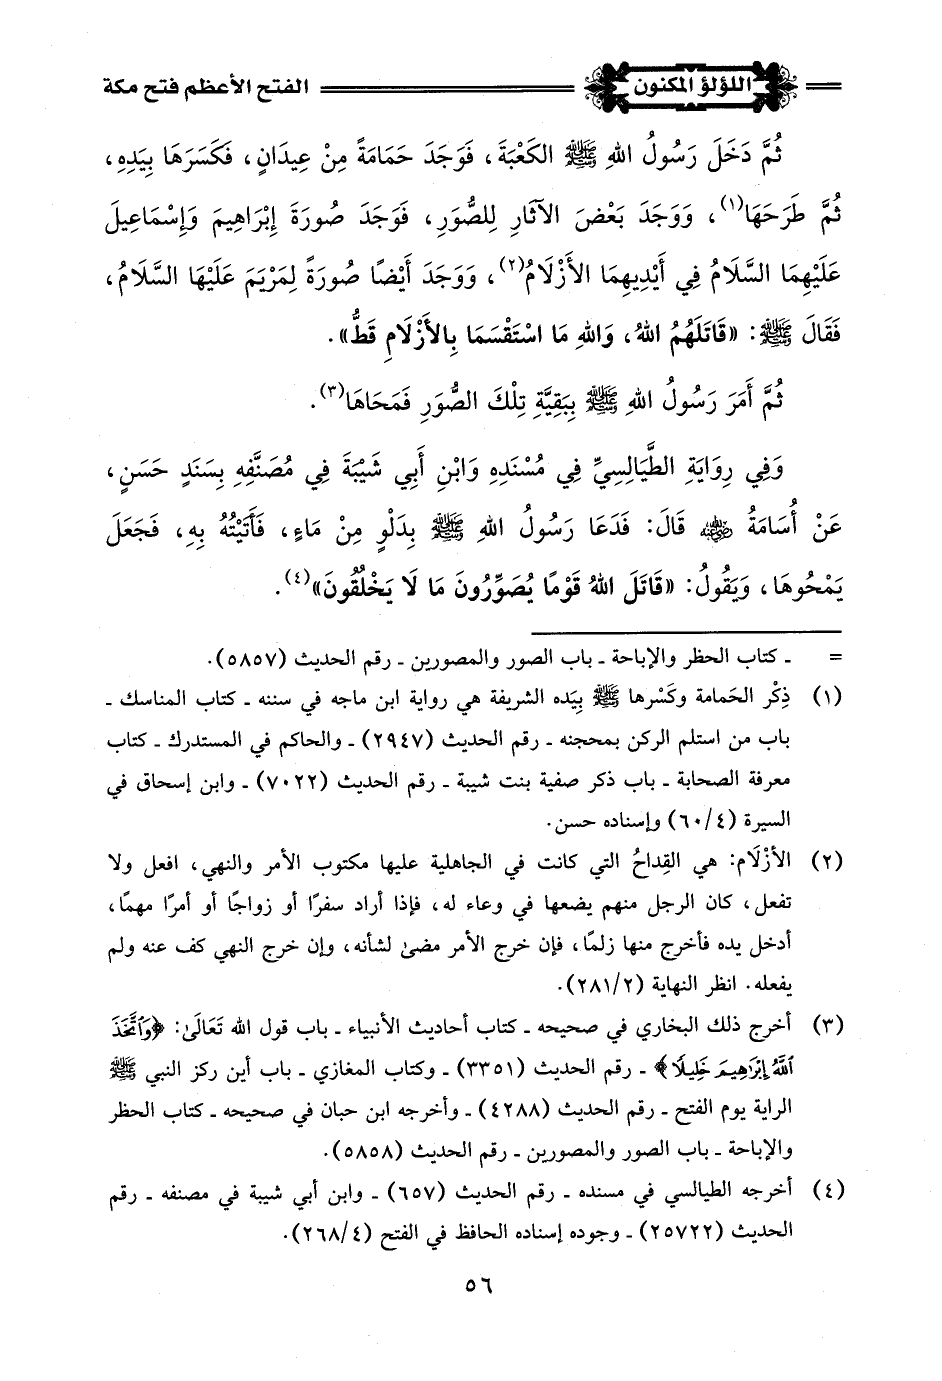 اللؤلؤ المكنون
الفتح الأعظم فتح مكة
ثُمَّ دَخَلَ رَسُولُ اللهِ ﷺ الكَعْبَةَ، فَوَجَدَ حَمَامَةً مِنْ عِيدَانٍ، فَكَسَرَهَا بِيَدِهِ،
ثُمَّ طَرَحَهَا(١)، وَوَجَدَ بَعْضَ الآثَارِ لِلصُّوَرِ، فَوَجَدَ صُورَةَ إِبْرَاهِيمَ وَإِسْمَاعِيلَ
عَلَيْهِمَا السَّلَامُ فِي أَيْدِيهِمَا الأَزْلَامُ(٢)، وَوَجَدَ أَيْضًا صُورَةً لِمَرْيَمَ عَلَيْهَا السَّلَامُ،
فَقَالَ ﷺ: «قَاتَلَهُمُ اللهُ، وَاللهِ مَا اسْتَقْسَمَا بِالأَزْلَامِ قَطُّ».
ثُمَّ أَمَرَ رَسُولُ اللهِ ﷺ بِبَقِيَّةِ تِلْكَ الصُّوَرِ فَمَحَاهَا(٣).
وَفِي رِوَايَةِ الطَّيَالِسِيِّ فِي مُسْنَدِهِ وَابْنِ أَبِي شَيْبَةَ فِي مُصَنَّفِهِ بِسَنَدٍ حَسَنٍ،
عَنْ أُسَامَةَ رضي الله عنه قَالَ: فَدَعَا رَسُولُ اللهِ ﷺ بِدَلْوٍ مِنْ مَاءٍ، فَأَتَيْتُهُ بِهِ، فَجَعَلَ
يَمْحُوهَا، وَيَقُولُ: «قَاتَلَ اللهُ قَوْمًا يُصَوِّرُونَ مَا لَا يَخْلُقُونَ»(٤).
= ـ كتاب الحظر والإباحة ـ باب الصور والمصورين ـ رقم الحديث (٥٨٥٧).
(١) ذِكْر الحَمامة وكَسْرها ﷺ بِيَده الشريفة هي رواية ابن ماجه في سننه ـ كتاب المناسك ـ
باب من استلم الركن بمحجنه ـ رقم الحديث (٢٩٤٧) ـ والحاكم في المستدرك ـ كتاب
معرفة الصحابة ـ باب ذكر صفية بنت شيبة ـ رقم الحديث (٧٠٢٢) ـ وابن إسحاق في
السيرة (٦٠/٤) وإسناده حسن.
(٢) الأزْلَام: هي القِداحُ التي كانت في الجاهلية عليها مكتوب الأمر والنهي، افعل ولا
تفعل، كان الرجل منهم يضعها في وعاء له، فإذا أراد سفرًا أو زواجًا أو أمرًا مهمًا،
أدخل يده فأخرج منها زلمًا، فإن خرج الأمر مضىٰ لشأنه، وإن خرج النهي كف عنه ولم
يفعله. انظر النهاية (٢٨١/٢).
(٣) أخرج ذلك البخاري في صحيحه ـ كتاب أحاديث الأنبياء ـ باب قول الله تَعَالَىٰ: ﴿وَٱتَّخَذَ
ٱللَّهُ إِبْرَٰهِيمَ خَلِيلًا﴾ ـ رقم الحديث (٣٣٥١) ـ وكتاب المغازي ـ باب أين ركز النبي ﷺ
الراية يوم الفتح ـ رقم الحديث (٤٢٨٨) ـ وأخرجه ابن حبان في صحيحه ـ كتاب الحظر
والإباحة ـ باب الصور والمصورين ـ رقم الحديث (٥٨٥٨).
(٤) أخرجه الطيالسي في مسنده ـ رقم الحديث (٦٥٧) ـ وابن أبي شيبة في مصنفه ـ رقم
الحديث (٢٥٧٢٢) ـ وجوده إسناده الحافظ في الفتح (٢٦٨/٤).
٥٦